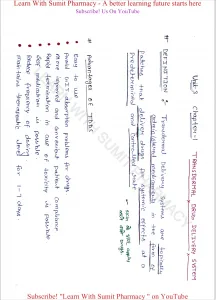 Learn With Sumit Pharmacy - A better learning future starts here
Subscribe! Us On YouTube
Unit 3 Chapter-1 TRANSDERMAL DRUG DELIVERY SYSTEM
* DEFINITION : Transdermal Delivery Systems are topically
in the form of
Patches that deliver drugs for systemic effects at a
Predetermined and controlled rate.
* Advantages OF TDDS
Easy to use
Avoid G.I.T absorption problems for drugs
More improved and convenient patient compliance
Rapid termination in case of toxicity is possible
Self medication is possible
Reduce frequency of dosing
maintains therapeutic level for 1-7 days
LEARN WITH SUMIT PHARMACY
Subscribe! "Learn With Sumit Pharmacy " on YouTube